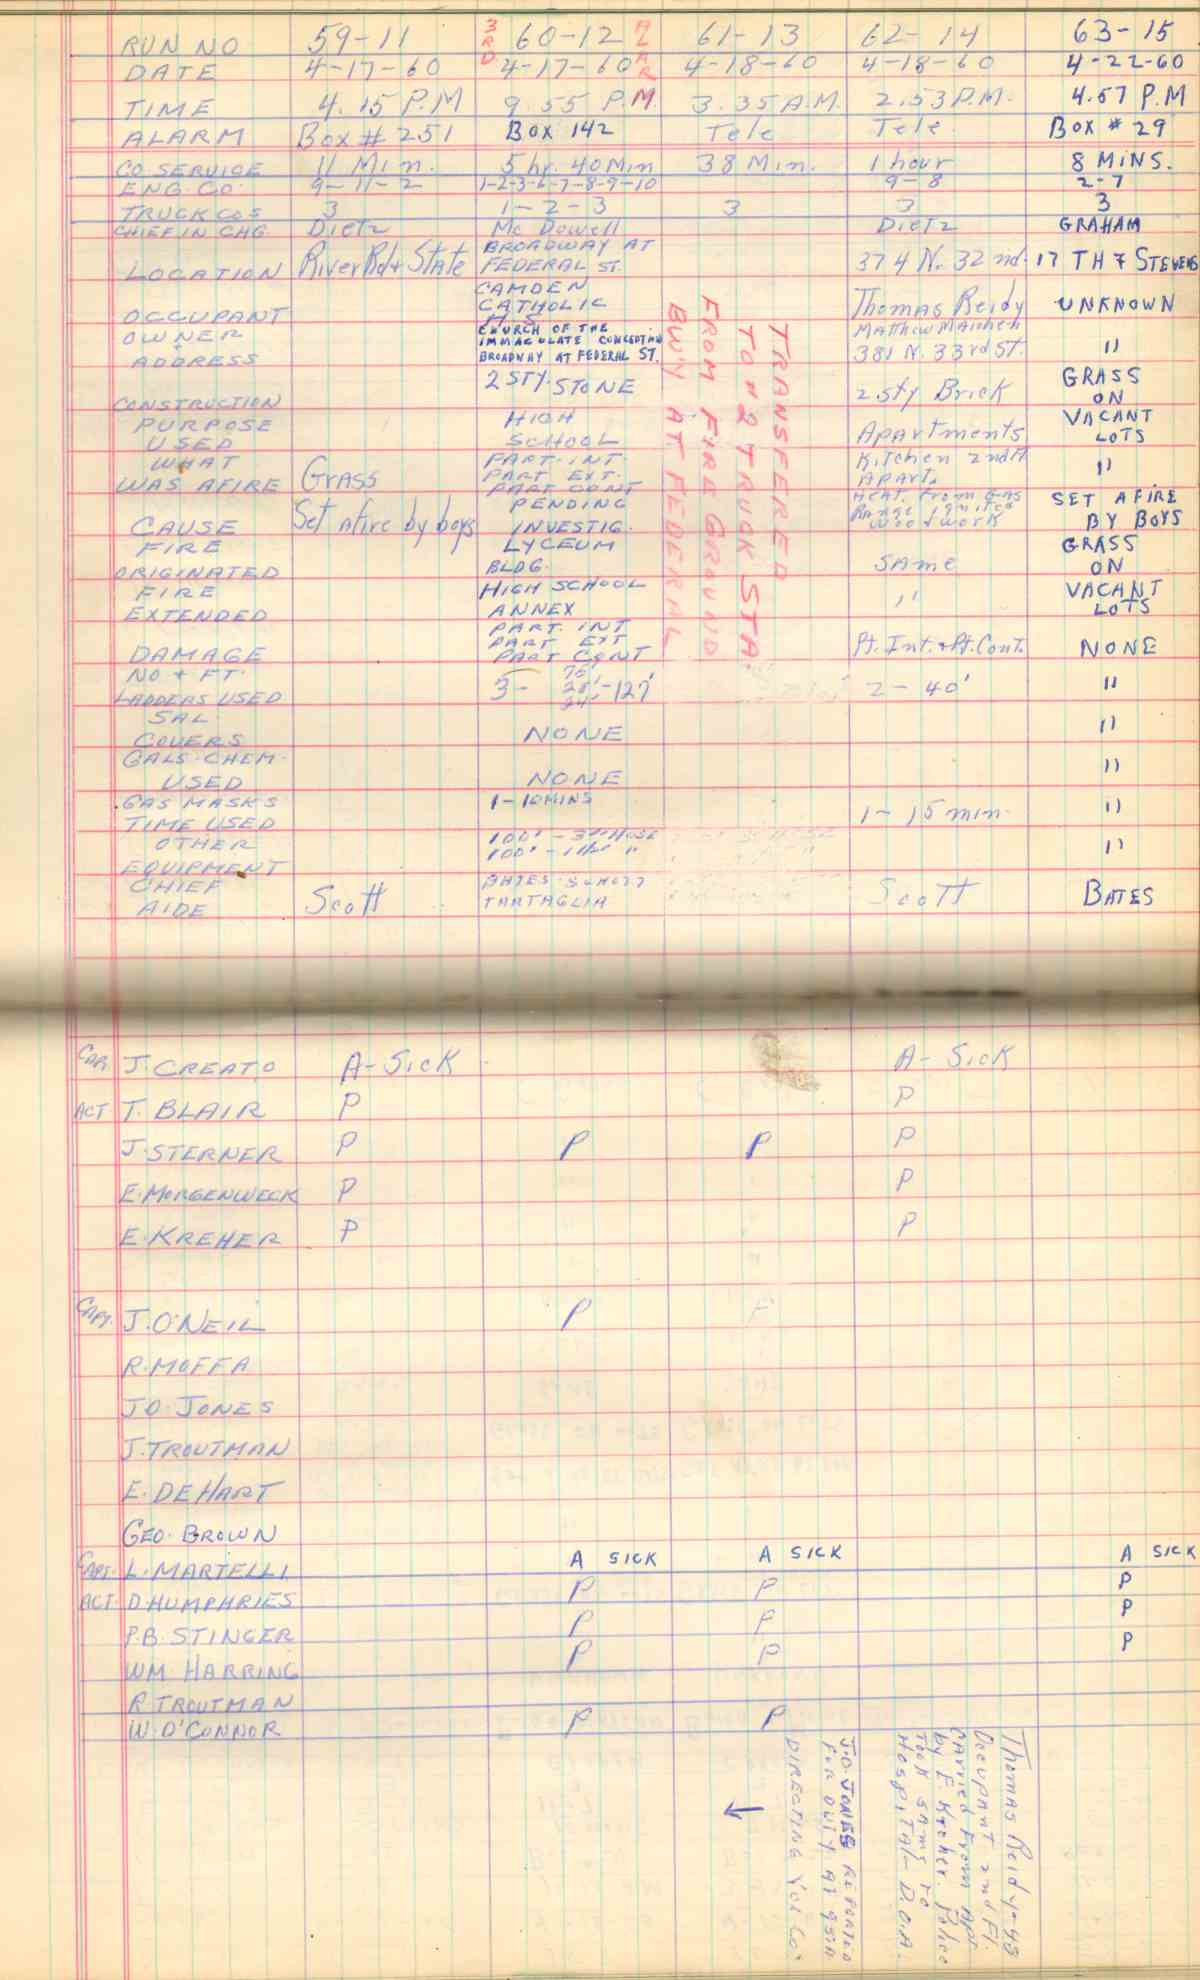 RUN NO 59-11 3RD 60-12 ALAR 61-13 62-14 63-15
DATE 4-17-60 4-17-60 4-18-60 4-18-60 4-22-60
TIME 4.15 P.M 9.55 P.M 3.35 A.M. 2.53 P.M. 4.57 P.M
ALARM Box # 251 BOX 142 Tele Tele. BOX # 29
CO SERVICE 11 Min. 5 hr. 40 Min 38 Min. 1 hour 8 MINS.
ENG. CO. 9-11-2 1-2-3-6-7-8-9-10 9-8 2-7
TRUCK COS 3 1-2-3 3 3 3
CHIEF IN CHG Dietz Mc Dowell Dietz GRAHAM
LOCATION River Rd + State BROADWAY AT
FEDERAL ST. 374 N. 32 nd. 17 TH 7 STEVENS
OCCUPANT CAMDEN
CATHOLIC
H.S. Thomas Reidy UNKNOWN
OWNER
+
ADDRESS CHURCH OF THE
IMMACULATE CONCEPTION
BROADWAY AT FEDERAL ST. 381 N. 33rd St. "
CONSTRUCTION 2 STY. STONE 2 sty Brick GRASS
ON
PURPOSE
USED HIGH
SCHOOL Apartments VACANT
LOTS
WHAT
WAS AFIRE Grass PART. INT.
PART EXT.
PART CONT Kitchen 2nd fl
Apart. "
CAUSE Set afire by boys PENDING
INVESTIG. Heat. from Gas
Range ignites
woodwork SET AFIRE
BY BOYS
FIRE
ORIGINATED LYCEUM
BLDG. Same GRASS
ON
FIRE
EXTENDED HIGH SCHOOL
ANNEX " VACANT
LOTS
DAMAGE PART. INT
PART EXT
PART CONT Pt. Int. + Pt. Cont. NONE
NO + FT.
LADDERS USED 3- 75'
28'
24' -127' 2-40' "
SAL.
COVERS NONE "
GALS. CHEM.
USED NONE "
GAS MASKS
TIME USED 1-10 MINS 1-15 min. "
OTHER
EQUIPMENT 100' - 3" HOSE
100' - 1 1/2" " "
CHIEF
AIDE Scott BATES SCHOTT
TARTAGLIA Scott BATES
TRANSFERED
TO # 2 TRUCK STA
FROM FIRE GROUND
BWY AT FEDERAL
CAP. J. CREATO A-Sick A-Sick
ACT T. BLAIR P P
J. STERNER P P P P
E. MORGENWECK P P
E. KREHER P P
CAPT. J. O'NEIL P P
R. MOFFA
J.O. JONES
J. TROUTMAN
E. DEHART
GEO. BROWN
CAPT. L. MARTELLI A SICK A SICK A SICK
ACT. D. HUMPHRIES P P P
P.B. STINGER P P P
WM HARRING P P P
R TROUTMAN
W. O'CONNOR P P
J.O. JONES REPORTED
FOR DUTY AT
DIRECTING
←
Thomas Reidy-48
Occupant 2nd Fl.
carried from Apt.
by E. Kreher. Police
took same to
Hospital - D.O.A.